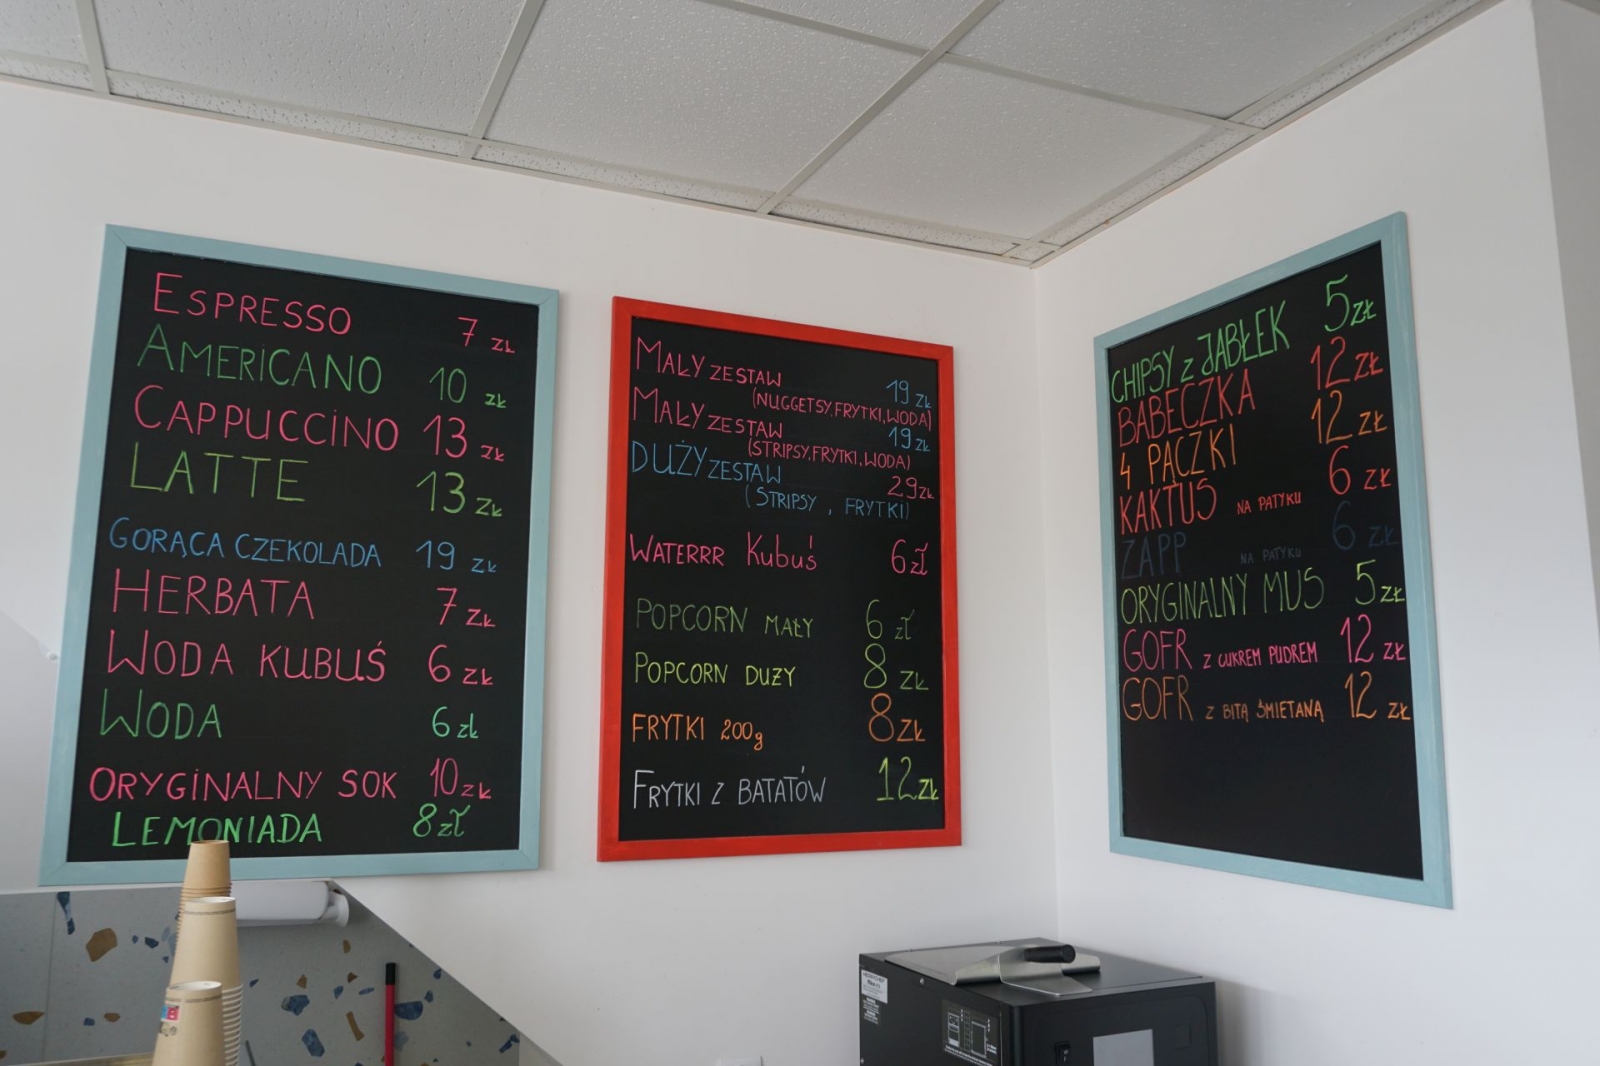 ESPRESSO 7 ZŁ
AMERICANO 10 ZŁ
CAPPUCCINO 13 ZŁ
LATTE 13 ZŁ
GORĄCA CZEKOLADA 19 ZŁ
HERBATA 7 ZŁ
WODA KUBUŚ 6 ZŁ
WODA 6 zł
ORYGINALNY SOK 10 ZŁ
LEMONIADA 8 zł
MAŁY ZESTAW 19 ZŁ
(NUGGETSY, FRYTKI, WODA)
MAŁY ZESTAW 19 ZŁ
(STRIPSY, FRYTKI, WODA)
DUŻY ZESTAW 29 ZŁ
(STRIPSY, FRYTKI)
WATERRR Kubuś 6 zł
POPCORN MAŁY 6 zł
POPCORN DUZY 8 ZŁ
FRYTKI 200g 8 ZŁ
FRYTKI Z BATATÓW 12 ZŁ
CHIPSY Z JABŁEK 5 ZŁ
BABECZKA 12 ZŁ
4 PĄCZKI 12 ZŁ
KAKTUS NA PATYKU 6 ZŁ
ZAPP NA PATYKU 6 ZŁ
ORYGINALNY MUS 5 ZŁ
GOFR Z CUKREM PUDREM 12 ZŁ
GOFR Z BITĄ ŚMIETANĄ 12 ZŁ